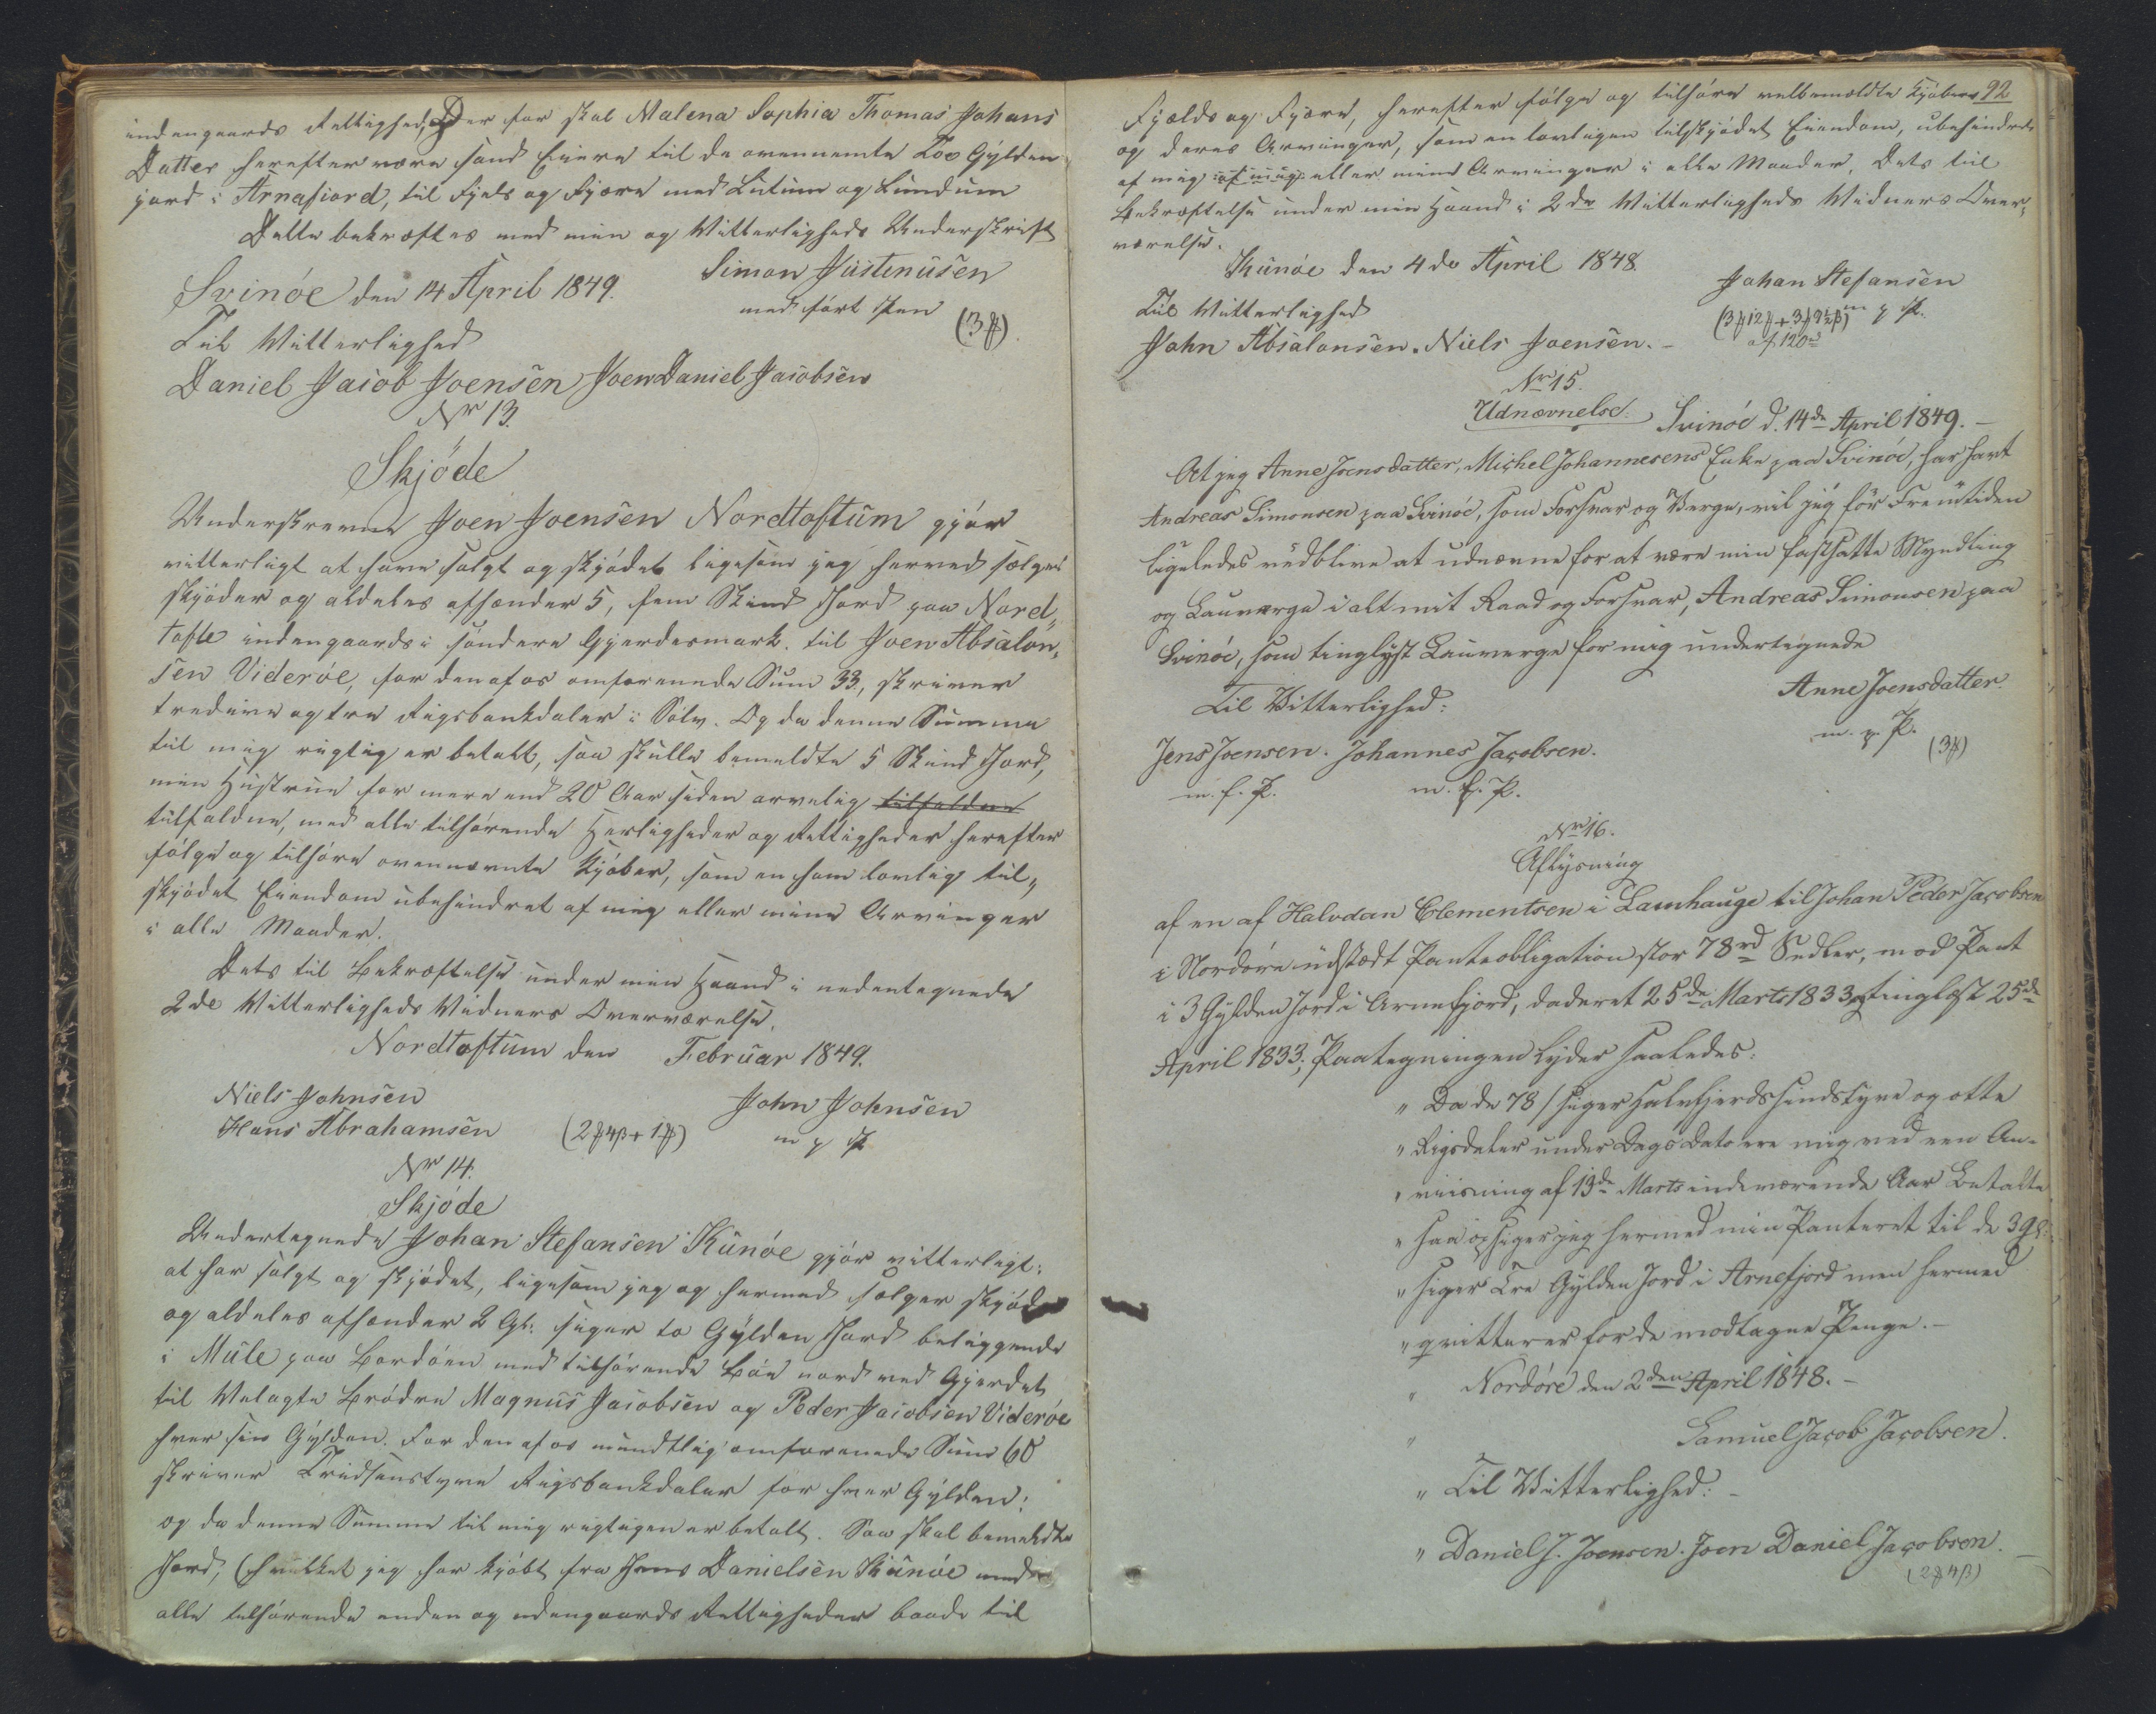 indengaards Rettighed, Derfor skal Malena Sophia Thomas Johans
Datter herefter være sand Eiere til de ovennemte Too Gylden
jord i Arnafiord, til Fjels og Fjære med Lutum og Lundum
Dette bekræftes med min og Vitterligheds Underskrift
Svinöe den 14 April 1849. Simon Justinusen
med fört Pen
Til Vitterlighed (3 ₰).
Daniel Jacob Joensen Joen Daniel Jacobsen
Nr 13.
Skjöde
Underskrevne Joen Joensen Nordtoftum gjör
vitterligt at have solgt og skjödet ligesom jeg herved sælger
skjöder og aldeles afhænder 5, fem Skind Jord paa Nord„
tofte indengaards i söndere Gjerdesmark. til Joen Absalon„
sen Videröe, for den af os omforenede Sum 33, skriver
tredive og tre Rigsbankdaler i Sölv. Og da denne Summa
til mig rigtig er betalt, saa skulle bemeldte 5 Skind Jord,
min Hustrue for mere end 20 Aar siden arvelig tilfaldne
tilfaldne, med alle tilhörende Herligheder og Rettigheder herefter
fölge og tilhöre ovennævnte Kjöber, som en ham lovlig til„
skjödet Eiendom ubehindret af mig eller mine Arvinger
i alle Maader.
Dets til Bekræftelse under min Haand i nedentegnede
2de Vitterligheds Vidners Overværelse.
Nordtoftum den Februar 1849.
Niels Johnsen John Johnsen
Hans Abrahamsen (2₰4ß+1₰) m p P
Nr 14.
Skjöde
Undertegnede Johan Stefansen Kunöe gjör vitterligt:
at har solgt og skjödet, ligesom jeg og hermed sælger skjöder
og aldeles afhænder 2 Gl: siger to Gylden Jord beliggende
i Mule paa Bordöen med tilhörende Böe nord ved Gjerdet
til Velagte Brödre Magnus Jacobsen og Peder Jacobsen Videröe
hver sin Gylden. For den af os mundtlig omforenede Sum 60
skriver Tridsenstyve Rigsbankdaler for hver Gylden:
og da denne Summe til mig rigtigen er betalt. Saa skal bemeldte
Jord, (hvilket jeg har kjöbt fra Jens Danielsen Kunöe med
alle tilhörende enden og udengaards Rettigheder baade til
92
Fjelds og Fjære, herefter fölge og tilhöre velbemeldte Kjöbere
og deres Arvinger, som en lovligen tilskjödet Eiendom, ubehindret
af mig af mig eller mine Arvinger i alle Maader. Dets til
Bekræftelse under min Haand i 2de Vitterligheds Vidners Over„
værelse.
Kunöe den 4de April 1848.
Johan Stefansen
Til Vitterlighed (3₰12ß+3₰9½ß) m p P.
John Absalonsen. Niels Joensen. af 120
Nr 15.
Udnævnelse. Svinöe d. 14de April 1849.
At jeg Anne Joensdatter, Michel Johannesens Enke paa Svinöe, har havt
Andreas Simonsen paa Svinöe, som Forsvar og Verge, vil jeg för Fremtiden
ligeledes vedblive at udnævne for at være min fastsatte Myndling
og Lauverge i alt mit Raad og Forsvar, Andreas Simonsen paa
Svinöe, som tinglyst Lauverge for mig undertegnede
Til Vitterlighed: Anne Joensdatter.
m. p. P.
Jens Joensen. Johannes Jacobsen. (3₰)
m. f. P. m. f. P.
Nr 16.
Aflysning
af en af Halvdan Clementsen i Lamhauge til Johan Peder Jacobsen
i Nordöre udstædt Panteobligation stor 78 rd Sedler, mod Pant
i 3 Gylden Jord i Arnefjord, daderet 25de Marts 1833 og tinglæst 25de
April 1833; Paategningen lyder saaledes:
„ Da de 78/ siger Halvfjerdsindstyve og otte
„ Rigsdaler under Dags Dato ere mig ved een An-
„ viisning af 13de Marts indeværende Aar Betalte
„ saa opsiger jeg hermed min Panteret til de 3 Gl:
„ siger Tre Gylden Jord i Arnefjord men hermed
„ qvitterer for de modtagne Penge.-
„ Nordöre den 2den April 1848.-
„ Samuel Jacob Jacobsen.
„ Til Vitterlighed:-
„ Daniel J. Joensen. Joen Daniel Jacobsen.
(2₰4ß)